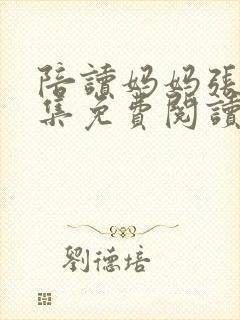 陪讀媽媽張
集免費閱讀
劉德培